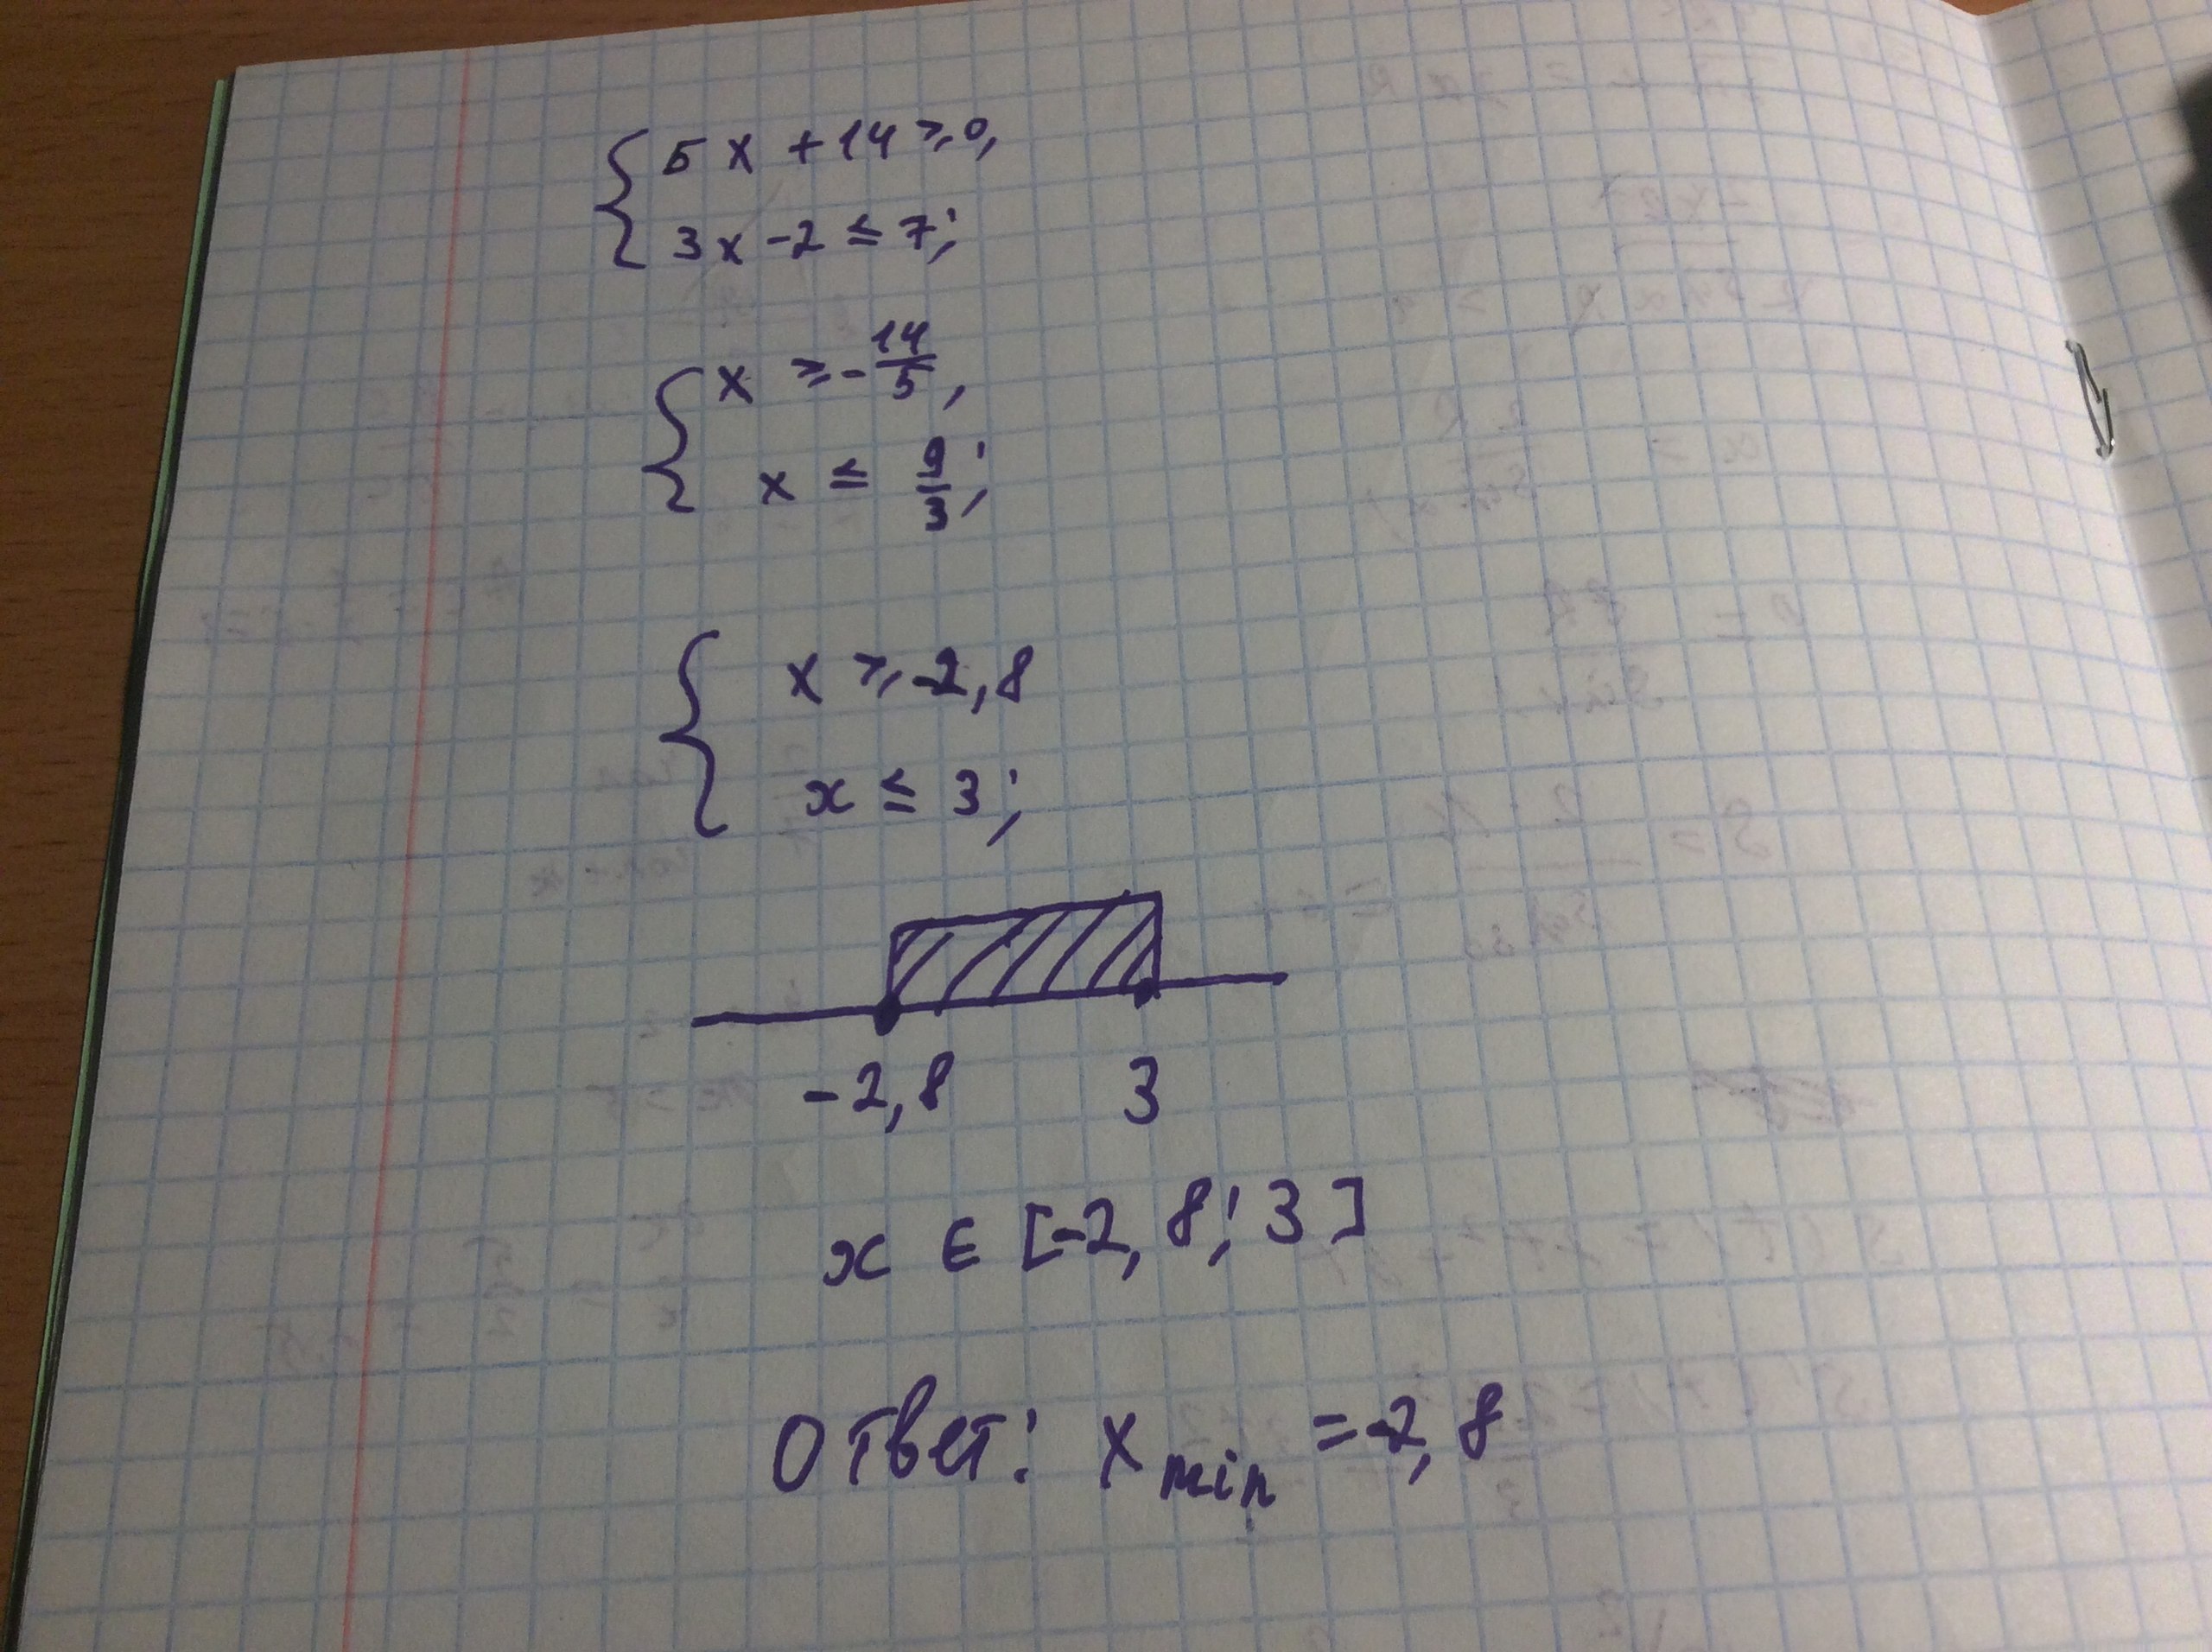 { 5x + 14 ≥ 0,
3x - 2 ≤ 7;
{ x ≥ - 14/5,
x ≤ 9/3;
{ x ≥ -2,8
x ≤ 3;
-2,8 3
x ∈ [-2,8; 3]
Ответ: x min = -2,8